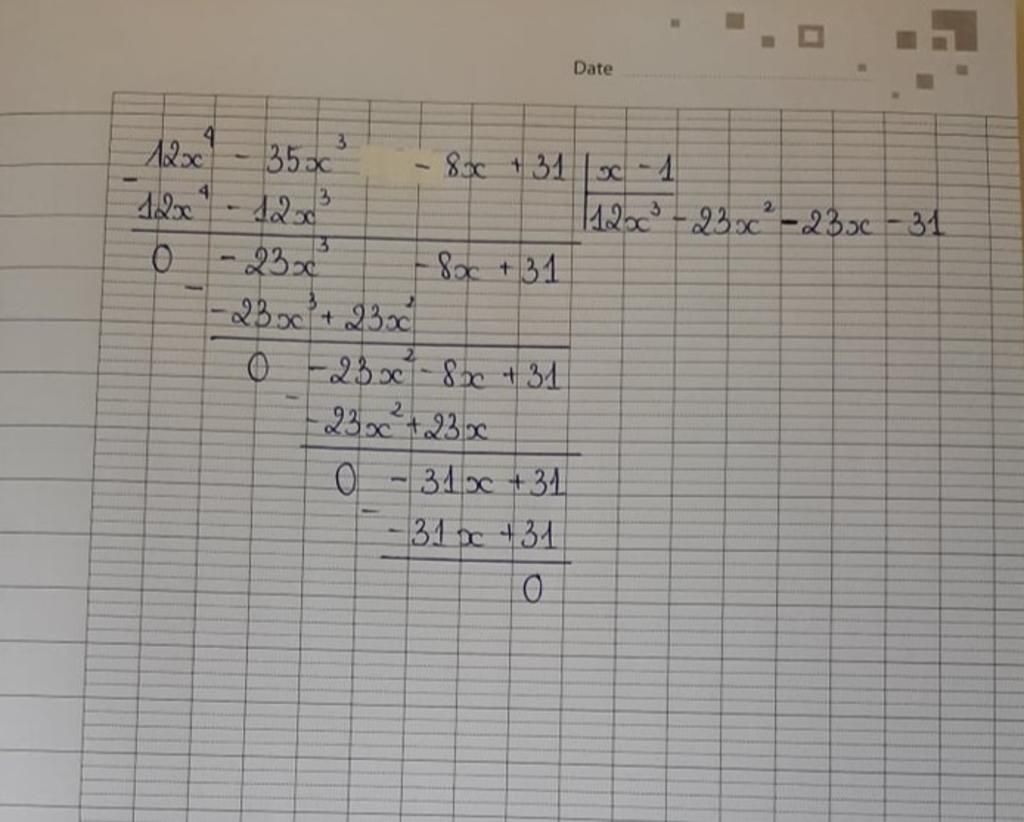 Date
12x⁴ - 35x³ - 8x + 31 | x - 1
- 12x⁴ - 12x³ | 12x³ - 23x² - 23x - 31
0 - 23x³ - 8x + 31
- - 23x³ + 23x²
0 - 23x² - 8x + 31
- - 23x² + 23x
0 - 31x + 31
- - 31x + 31
0